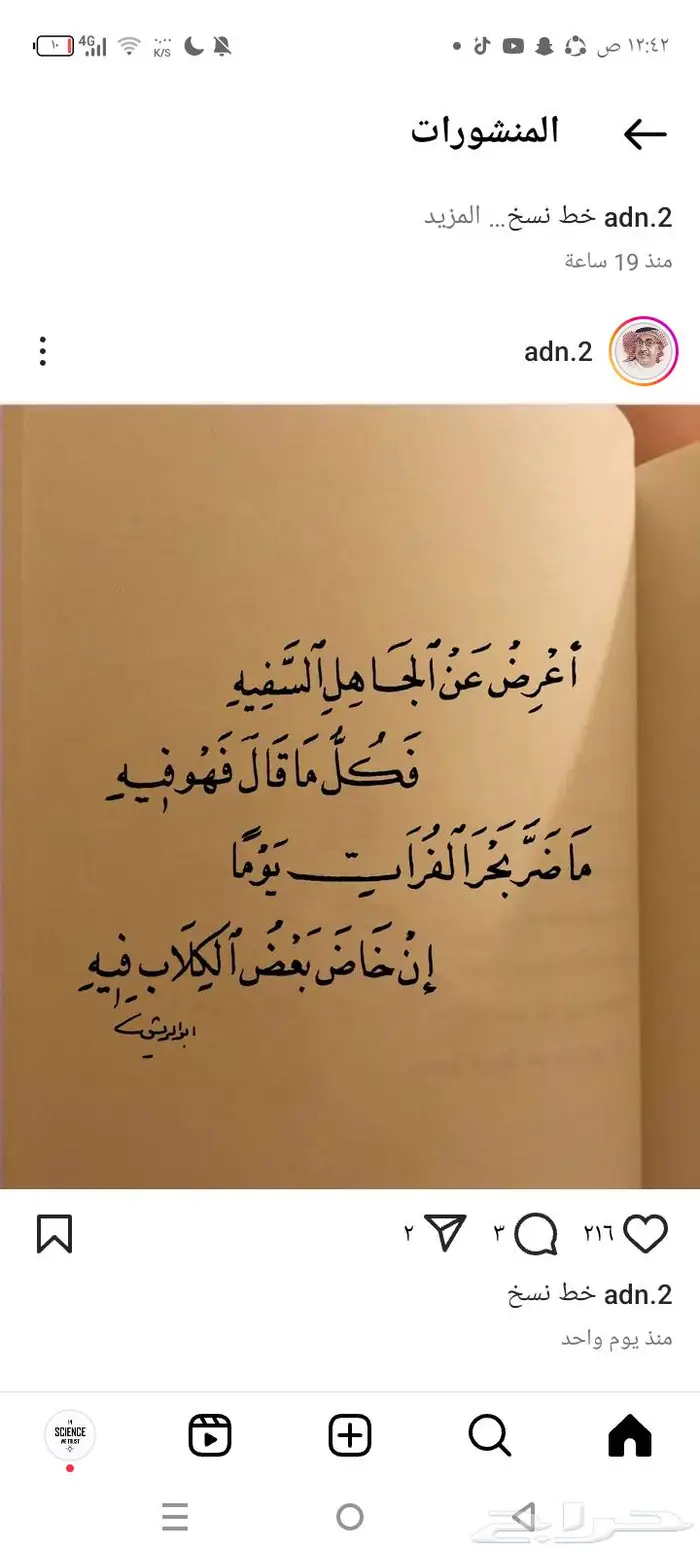 ١٢:٤٢ ص
4G
١٠
K/S
المنشورات
adn.2 خط نسخ... المزيد
منذ 19 ساعة
adn.2
أَعْرِضْ عَنْ الجَاهِلِ السَّفِيهِ
فَكُلُّ مَا قَالَ فَهُو فِيهِ
مَا ضَرَّ بَحْرَ الفُرَاتِ يَوْمًا
إِنْ خَاضَ بَعْضُ الكِلَابِ فِيهِ
٢١٦ ٣ ٢
adn.2 خط نسخ
منذ يوم واحد
IN SCIENCE WE TRUST
حراج